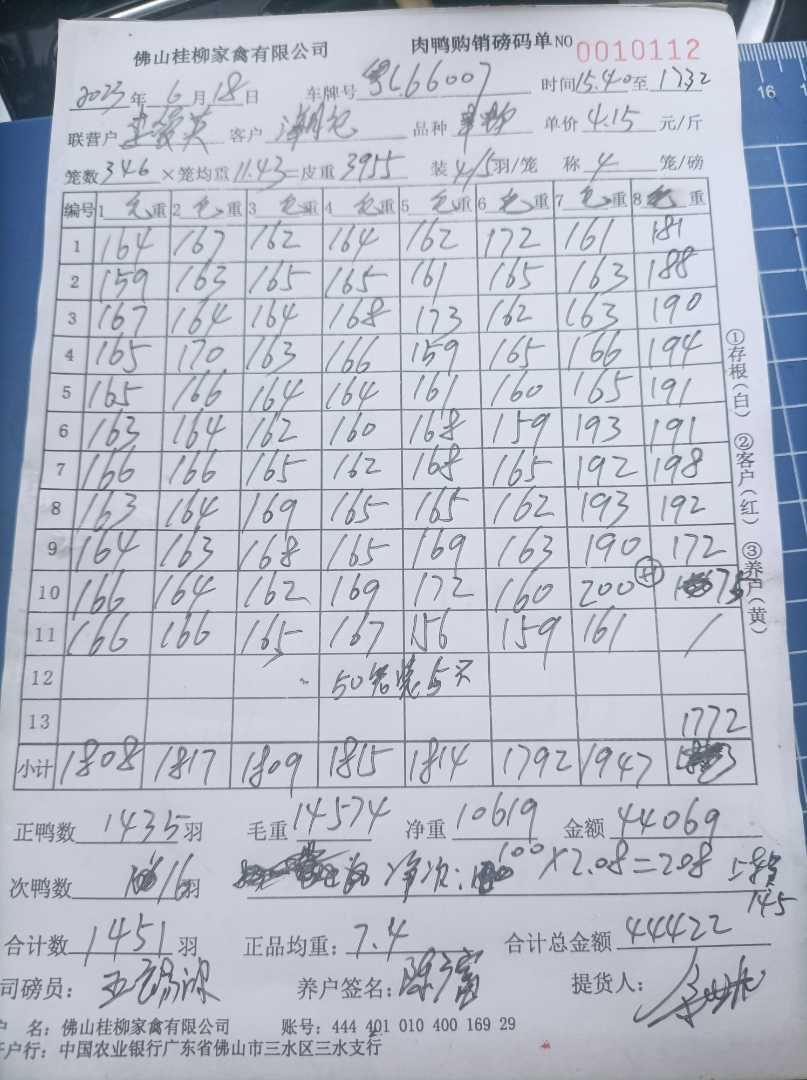 佛山桂柳家禽有限公司 肉鸭购销磅码单NO 0010112
2023年6月18日 车牌号 粤L66007 时间15.40至1732
联营户 客户 品种 单价 4.15 元/斤
笼数 346 ×笼均重 11.43=皮重 3955 装 4/5羽/笼 称 4 笼/磅
编号 1 毛重 2 毛重 3 毛重 4 毛重 5 毛重 6 毛重 7 毛重 8 毛重
1 164 167 162 164 162 172 161 181
2 159 163 165 165 161 165 163 188
3 167 164 164 168 173 162 163 190
4 165 170 163 166 159 165 166 194
5 165 166 164 164 161 160 165 191
6 163 164 162 160 168 159 193 191
7 166 166 165 162 168 165 192 198
8 163 164 169 165 165 162 193 192
9 164 163 168 165 169 163 190 172
10 166 164 162 169 172 160 200 75
11 166 166 165 167 156 159 161 /
12 50笼装5只
13 1772
小计 1808 1817 1809 1815 1814 1792 1947
正鸭数 1435 羽 毛重 14574 净重 10619 金额 44069
次鸭数 16羽 净次: 100×2.08=208
145
合计数 1451 羽 正品均重: 7.4 合计总金额 44422
司磅员: 养户签名: 提货人:
户 名: 佛山桂柳家禽有限公司 账号: 444 401 010 400 169 29
开户行: 中国农业银行广东省佛山市三水区三水支行
①存根(白) ②客户(红) ③养户(黄)
16